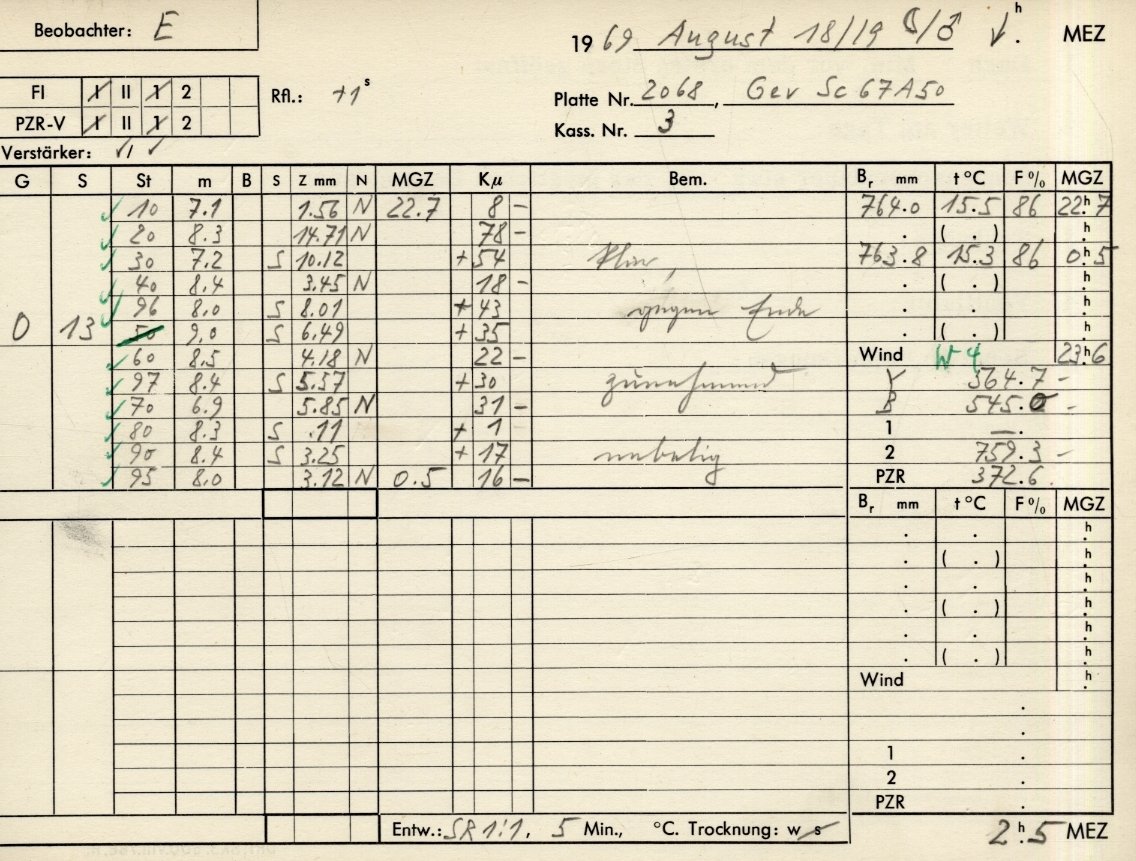 Beobachter: E
19 69 August 18/19 ☾/♂ h . MEZ
FI I II 1 2
Rfl.: +1 s
Platte Nr. 2068, Gev Sc 67A50
PZR-V I II 1 2
Kass. Nr. 3
Verstärker: √ √
G S St m B S Z mm N MGZ Kµ Bem. Br mm t °C F % MGZ
10 7.1 1.56 N 22.7 8 – 764.0 15.5 86 22h.7
20 8.3 14.71 N 78 – . ( . ) h.
30 7.2 S 10.12 + 54 klar, 763.8 15.3 86 0h.5
40 8.4 3.45 N 18 – . ( . ) h.
96 8.0 S 8.01 + 43 gegen Ende . . h.
0 13 50 9.0 S 6.49 + 35 . ( . ) h.
60 8.5 4.18 N 22 – Wind W 4 23h.6
97 8.4 S 5.57 + 30 zunehmend Y 364.7 –
70 6.9 5.85 N 31 – B 545.0 –
80 8.3 S .11 + 1 1 —.
90 8.4 S 3.25 + 17 nebelig 2 759.3 –
95 8.0 3.12 N 0.5 16 – PZR 372.6
Br mm t °C F % MGZ
. . h.
. ( . ) h.
. . h.
. ( . ) h.
. . h.
. ( . ) h.
Wind h.
.
.
1 .
2 .
PZR .
Entw.: SR 1:1, 5 Min., °C. Trocknung: w s 2h.5 MEZ